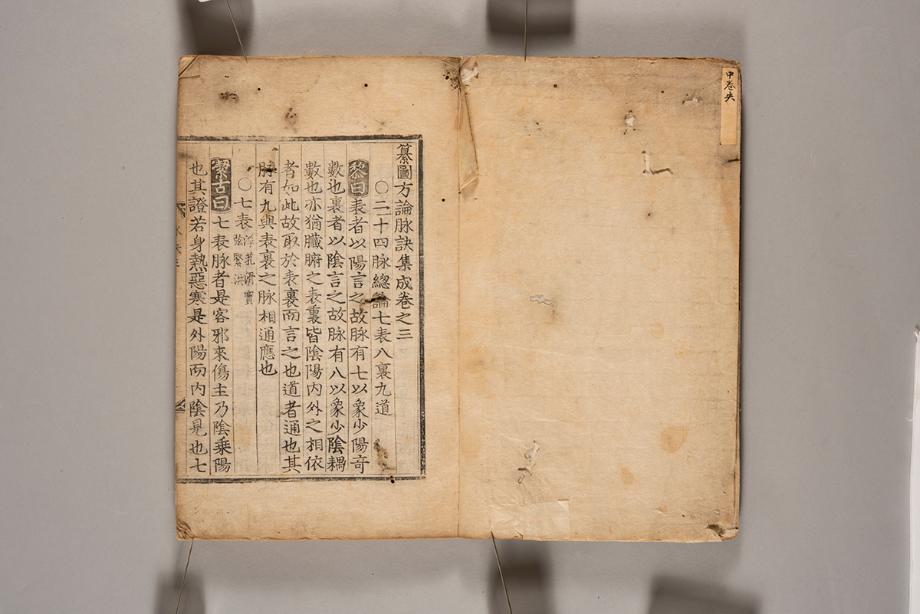 中卷共
纂圖方論脉訣集成卷之三
○二十四脉總論七表八裏九道
黎曰表者以陽言之故脉有七以象少陽奇
數也裏者以陰言之故脉有八以象少陰耦
數也亦猶臟腑之表裏皆陰陽內外之相依
者如此故取於表裏而言之也道者通也其
脉有九與表裏之脉相通應也
○七表浮芤滑實弦緊洪
潔古曰七表脉者是客邪來傷主乃陰乘陽
也其證若身熱惡寒是外陽而內陰見也七